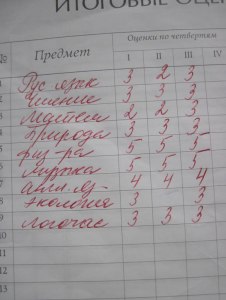 ИТОГОВЫЕ ОЦЕ
№ Предмет Оценки по четвертям
I II III IV
1 Рус язык 3 2 3
2 Чтение 3 3 3
3 Матем 2 2 3
4 Природа 3 3 3
5 физ-ра 5 5 5
6 Музыка 5 5 5
7 Англ яз- 4 4 4
8 Экология 3 3
9 Логочас 3 3 3
10
11
12
13